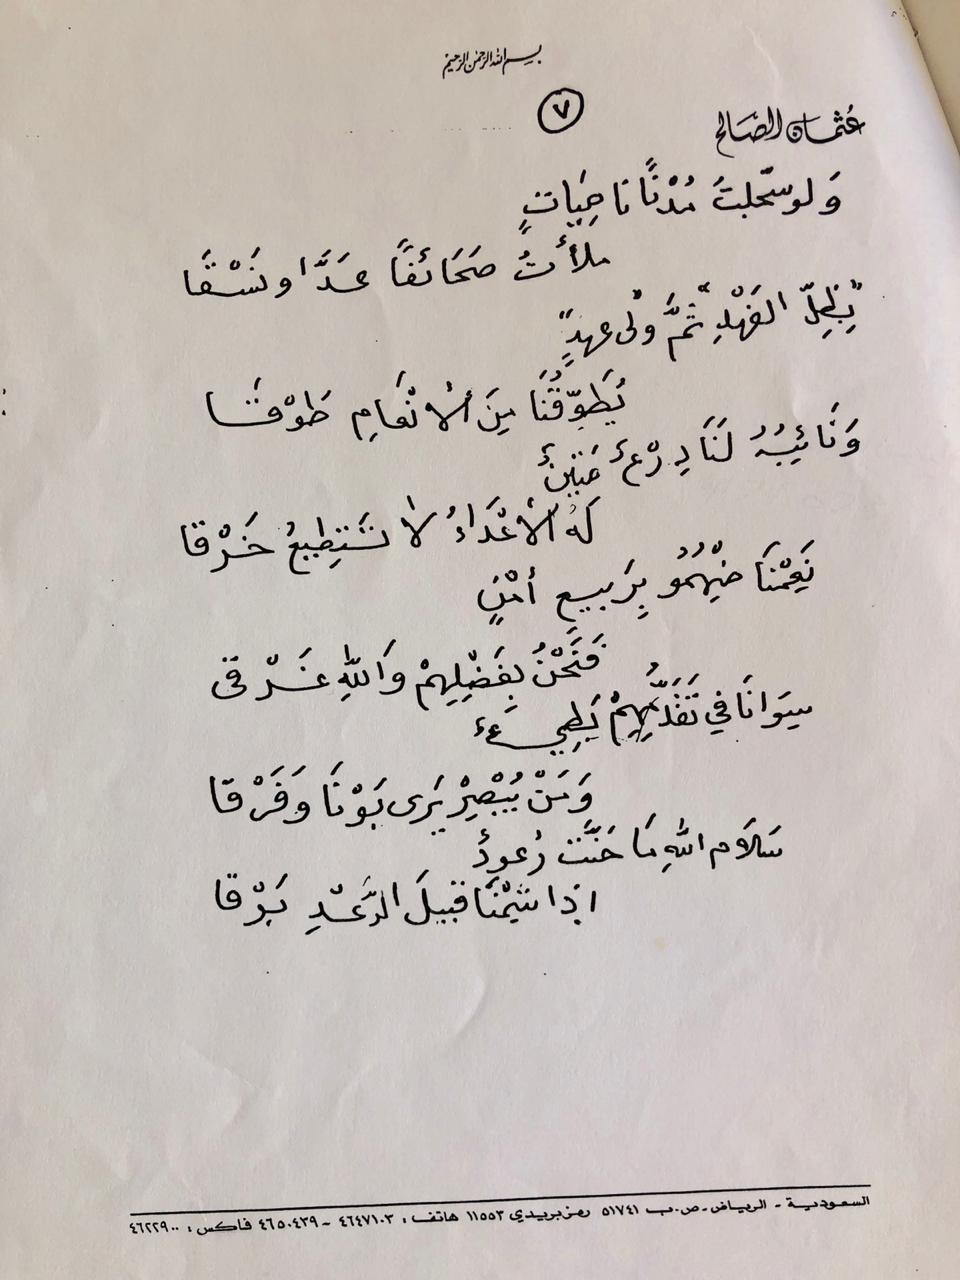 بسم الله الرحمن الرحيم
٧
عثمان الصالح
وَلو سَجّلتُ مُدْنًا ناحِيَاتٍ
ملأتُ صَحَائفًا عَدًّا ونَسْقَا
"بِظِلِّ الفَهْدِ" ثمَّ "ولى عهدٍ"
يُطَوِّقُنَا مِنَ الأنْعَامِ طَوْقَا
وَنَائِبُهُ لَنَا دِرْعٌ مَتِينٌ
لَهُ الأعْدَاءُ لا تَسْتَطِيعُ خَرْقا
نَعِمْنَا مِنْهُمُو بِرَبيعِ أمْنٍ
فَنَحْنُ بِفَضْلِهِمْ وَاللهِ غَرْقى
سِوَانَا في تَقَدُّمِهِمْ بَطِيءٌ
وَمَنْ يُبْصِرْ يَرَى بَوْنًا وَفَرْقا
سَلاَم اللهِ مَا حَنَّت رُعودٌ
اذا شِمْنَا قبيلَ الرَّعْدِ بَرْقا
السعودية - الرياض - ص.ب ٥١٧٤١ رمز بريدى ١١٥٥٣ هاتف: ٤٦٤٧١٠٣ - ٤٦٥٠٤٣٩ فاكس: ٤٦٢٢٩٠٠